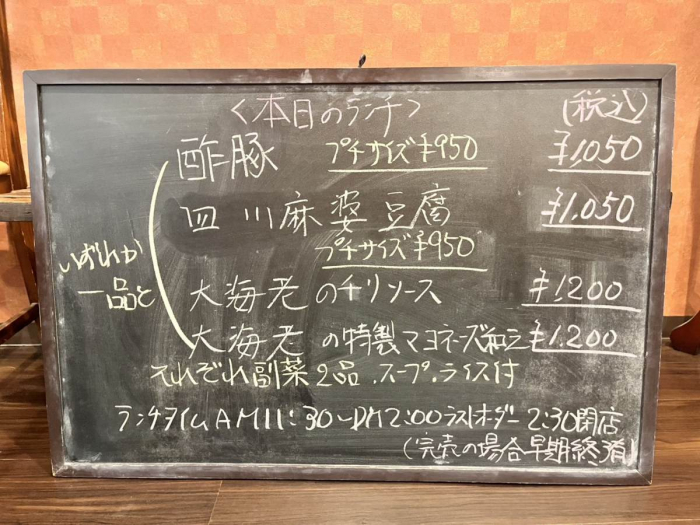 <本日のランチ> (税込)
酢豚 プチサイズ¥950 ¥1,050
四川麻婆豆腐 ¥1,050
プチサイズ¥950
いずれか
一品と
大海老のチリソース ¥1,200
大海老の特製マヨネーズ和え ¥1,200
それぞれ副菜2品.スープ.ライス付
ランチタイムAM11:30〜PM2:00ラストオーダー 2:30閉店
(完売の場合早期終了)